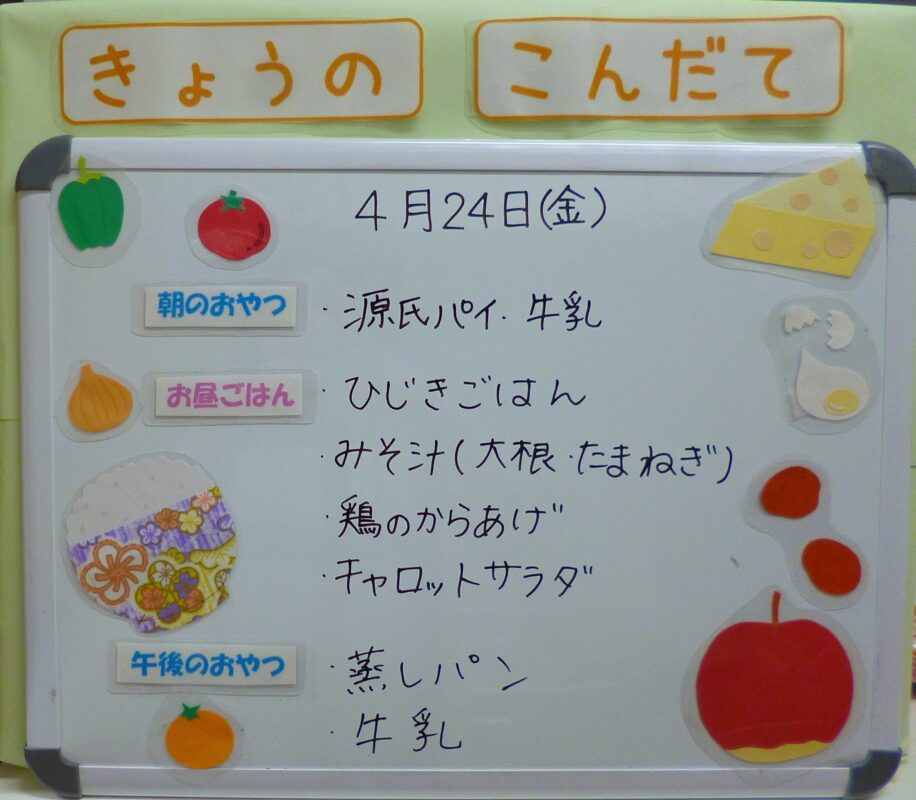 きょうの こんだて
4月24日(金)
朝のおやつ ・源氏パイ・牛乳
お昼ごはん ・ひじきごはん
・みそ汁(大根・たまねぎ)
・鶏のからあげ
・キャロットサラダ
午後のおやつ ・蒸しパン
・牛乳